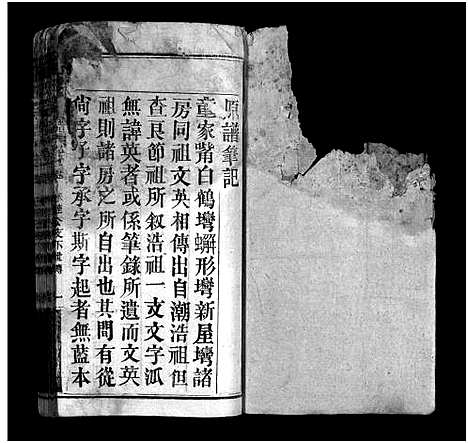 原譜筆記
童家觜白鶴壪蠏形壪新屋壪諸
房同祖文英相傳出自潮浩祖但
查艮節祖所叙浩祖一支文字派
無諱英者或係筆錄所遺而文英
祖則諸房之所自出也其間有從
尙字了字承字斯字起者無藍本